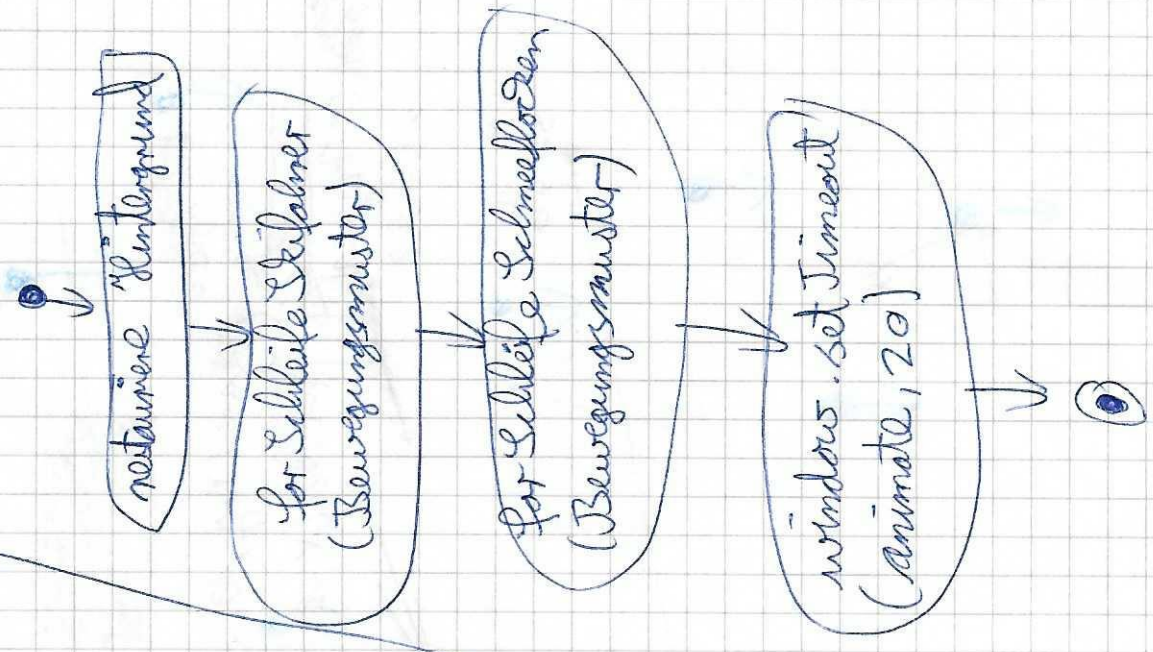 restauriere Hintergrund
for Schleife Skifahrer
(Bewegungsmuster)
for Schleife Schneeflocken
(Bewegungsmuster)
window.setTimeout
(animate, 20)